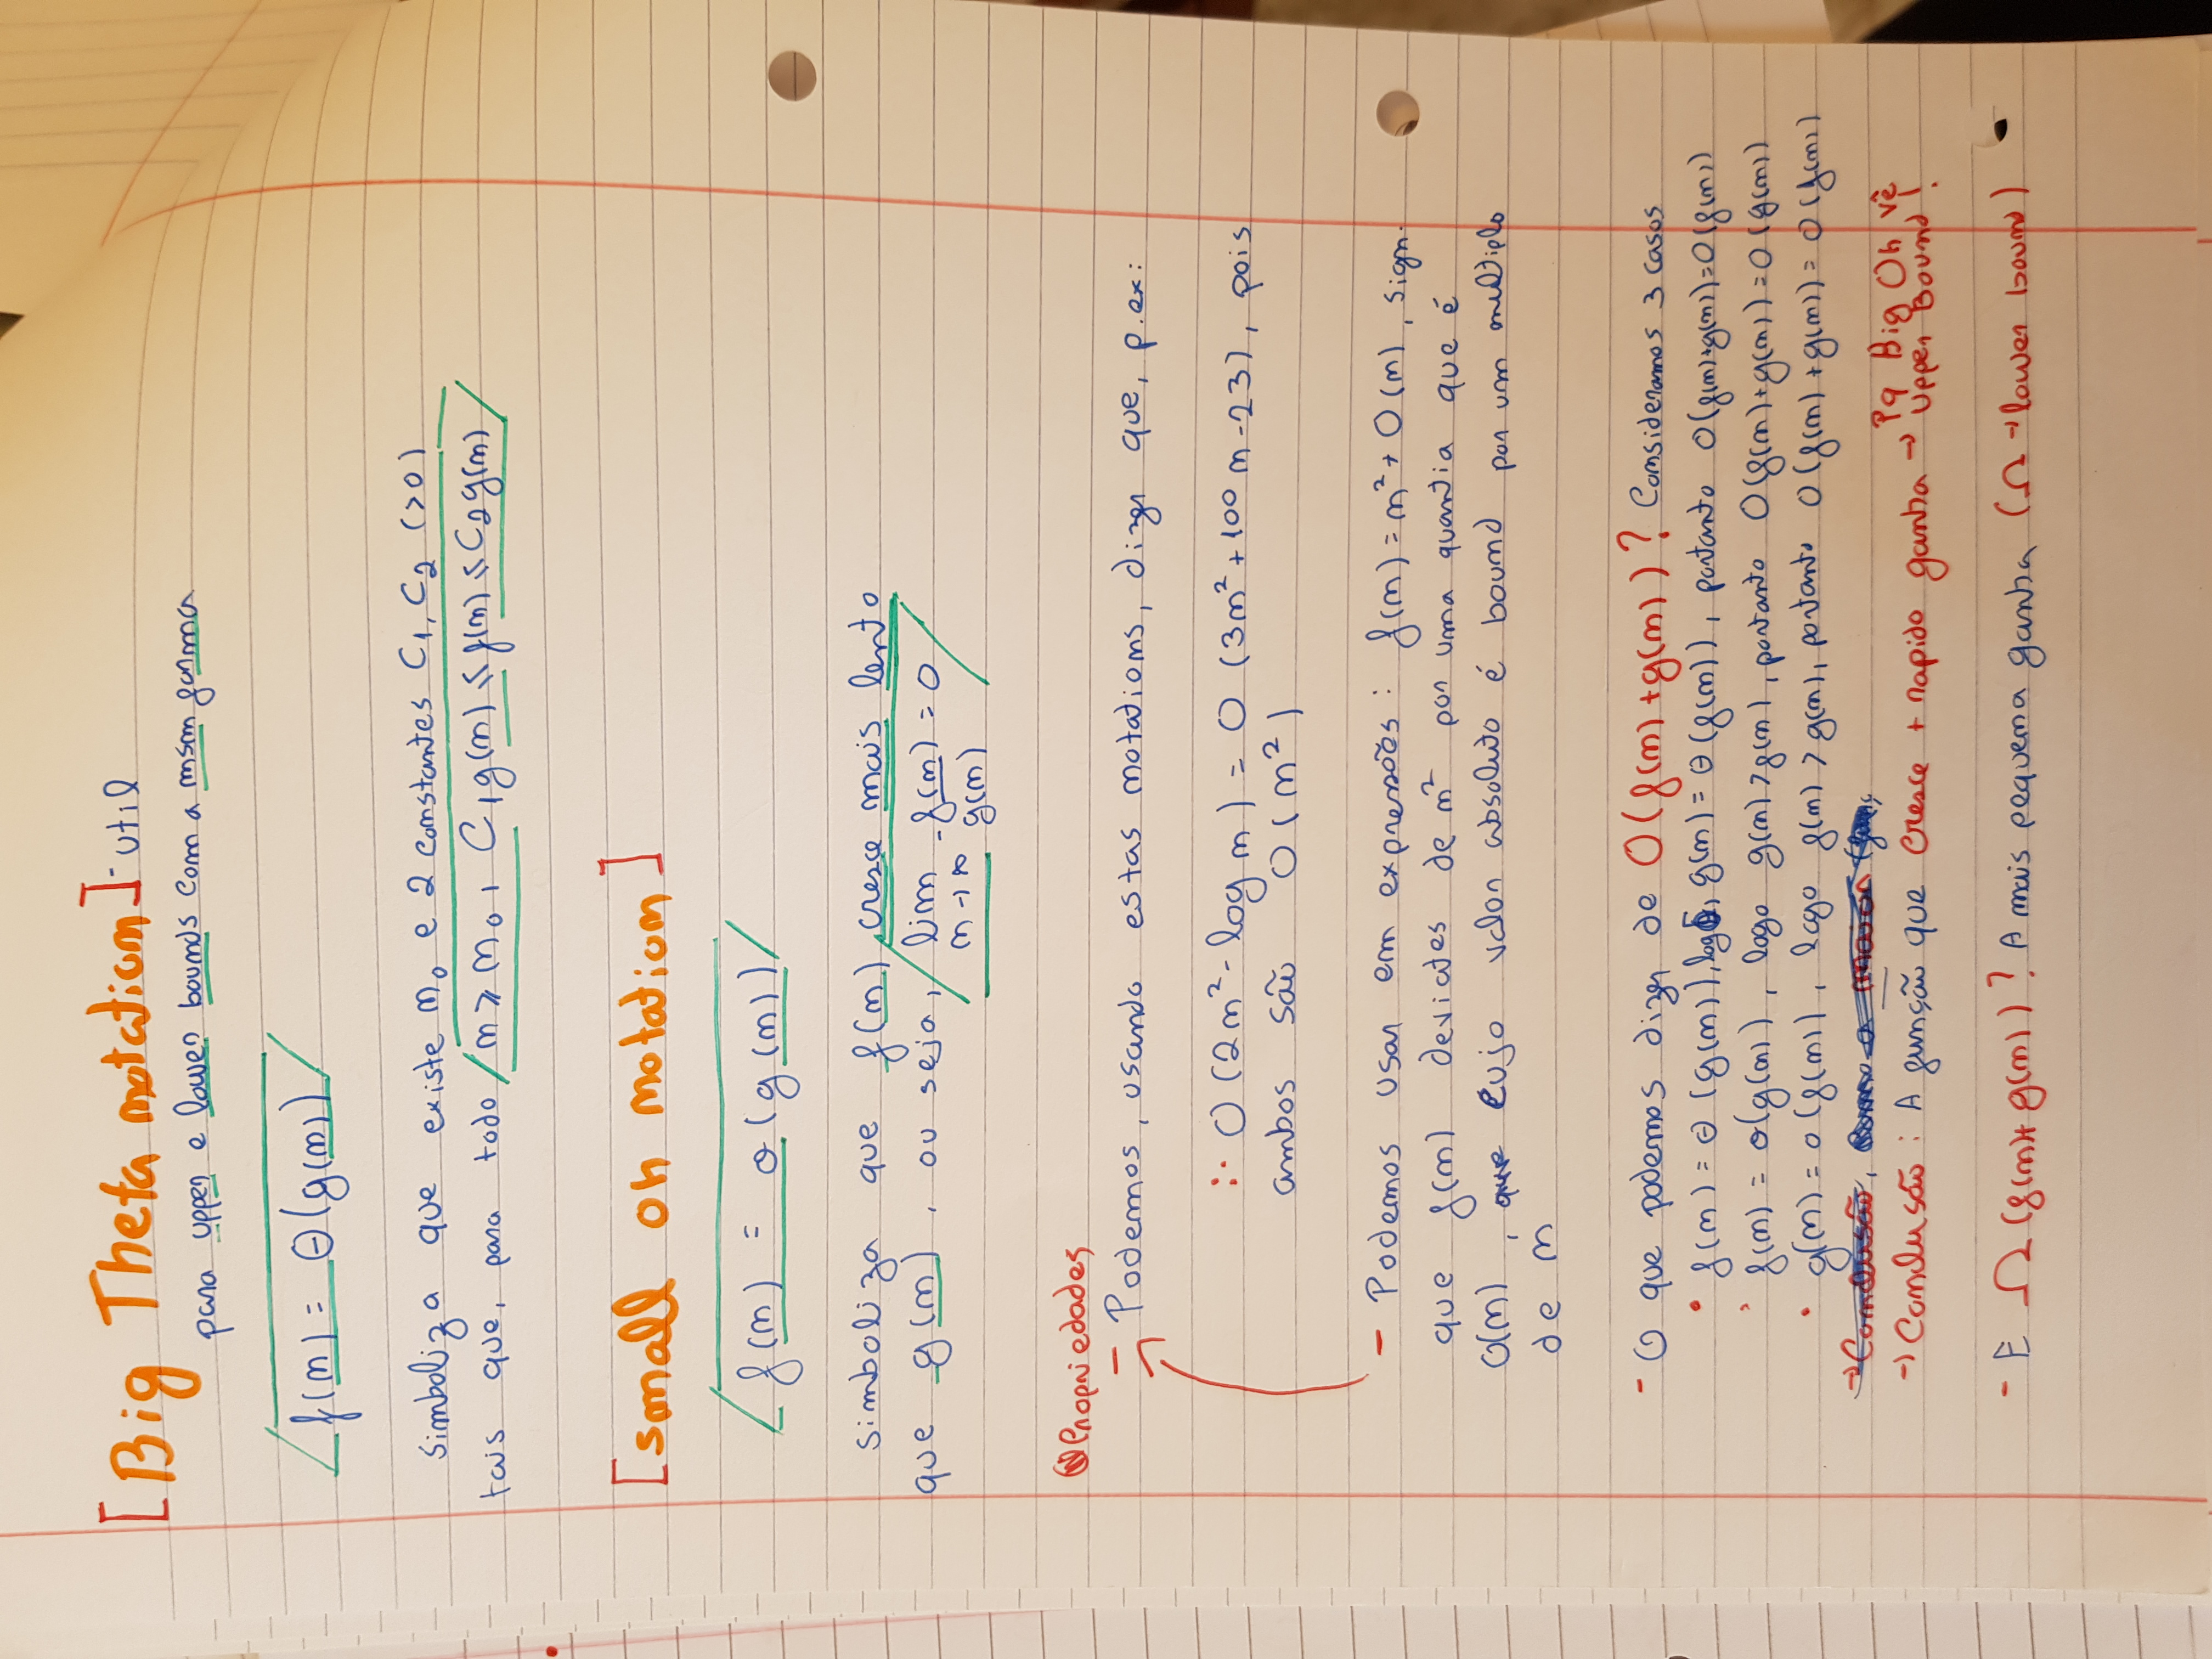 [Big Theta notation] - util
para upper e lower bounds com a msm forma
f(n) = Θ(g(n))
simboliza que existe n₀ e 2 constantes C₁, C₂ (>0)
tais que, para todo n ⩾ n₀, C₁g(n) ⩽ f(n) ⩽ C₂g(n)
[small oh notation]
f(n) = o(g(n))
simboliza que f(n) cresce mais lento
que g(n), ou seja, lim f(n) = 0
n→∞ g(n)
Propriedades
- Podemos, usando estas notations, dizer que, p.ex:
∴ O(2n² - log n) = O(3n² + 100n - 23), pois
ambos são O(n²)
- Podemos usar em expressões: f(n) = n² + O(n), sign.
que f(n) deviates de n² por uma quantia que é
O(n), que cujo valor absoluto é bound por um multiplo
de n
- O que podemos dizer de O(f(n) + g(n))? Consideramos 3 casos
• f(n) = Θ(g(n)), logo, g(n) = Θ(f(n)), portanto O(f(n)+g(n)) = O(f(n))
• f(n) = o(g(n)), logo g(n) > f(n), portanto O(f(n)+g(n)) = O(g(n))
• g(n) = o(f(n)), logo f(n) > g(n), portanto O(f(n)+g(n)) = O(f(n))
→ Conclusão, a maior
→ Conclusão: A função que cresce + rapido ganha → Pq Big Oh vê
Upper Bound!
- E Ω(f(n)+g(n))? A mais pequena ganha (Ω → lower bound)